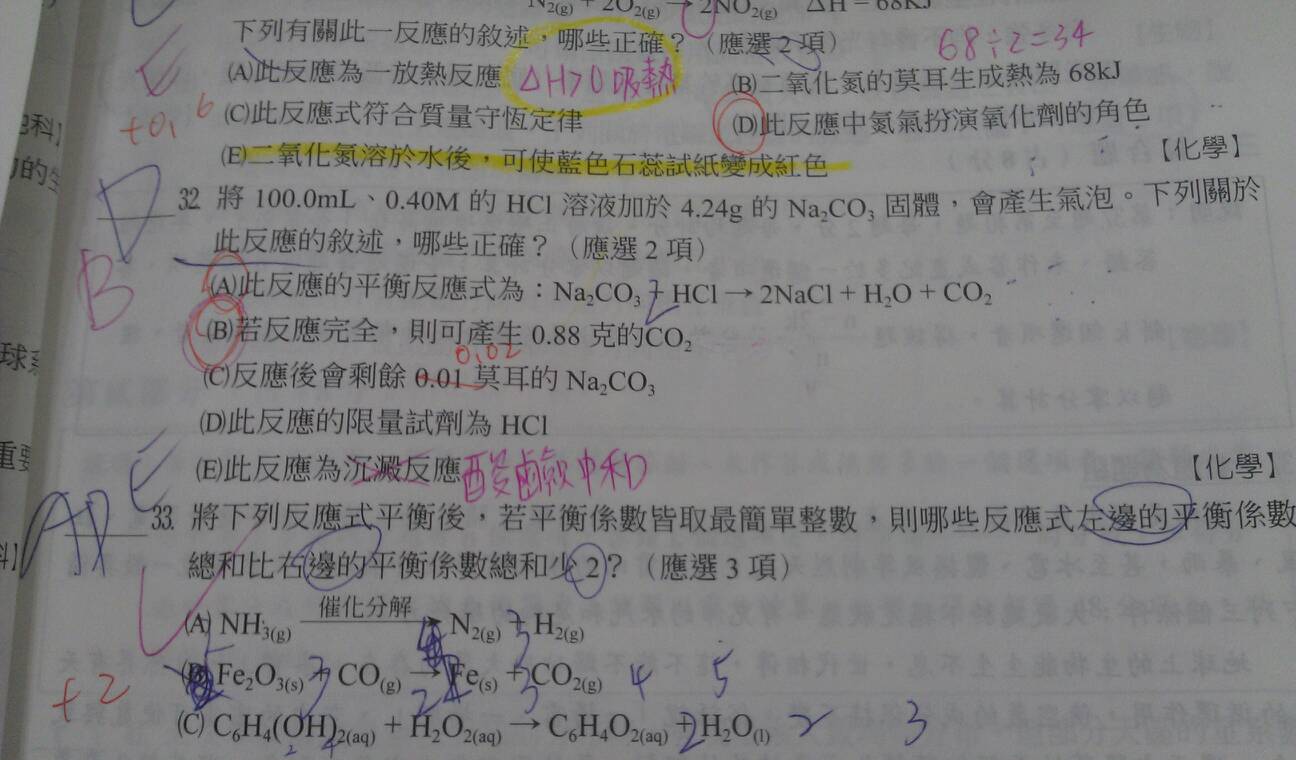 N₂(g) + 2O₂(g) → 2NO₂(g) ΔH = 68KJ
下列有關此一反應的敘述，哪些正確？（應選 2 項） 68÷2=34
(A)此反應為一放熱反應 ΔH>0 吸熱 (B)二氧化氮的莫耳生成熱為 68kJ
E
+0.6 (C)此反應式符合質量守恆定律 (D)此反應中氮氣扮演氧化劑的角色
(E)二氧化氮溶於水後，可使藍色石蕊試紙變成紅色 【化學】
D 32. 將 100.0mL、0.40M 的 HCl 溶液加於 4.24g 的 Na₂CO₃ 固體，會產生氣泡。下列關於
此反應的敘述，哪些正確？（應選 2 項）
B (A)此反應的平衡反應式為：Na₂CO₃ + 2 HCl → 2NaCl + H₂O + CO₂
(B)若反應完全，則可產生 0.88 克的CO₂
0.02
(C)反應後會剩餘 0.01 莫耳的 Na₂CO₃
(D)此反應的限量試劑為 HCl
(E)此反應為沉澱反應 酸鹼中和 【化學】
33. 將下列反應式平衡後，若平衡係數皆取最簡單整數，則哪些反應式左邊的平衡係數
總和比右邊的平衡係數總和少 2？（應選 3 項）
(A) NH₃(g) 催化分解 → N₂(g) + 3 H₂(g)
(B) Fe₂O₃(s) + 3 CO(g) → 2 Fe(s) + 3 CO₂(g) 4 5
+2 (C) C₆H₄(OH)₂(aq) + H₂O₂(aq) → C₆H₄O₂(aq) + 2 H₂O(l) 2 3